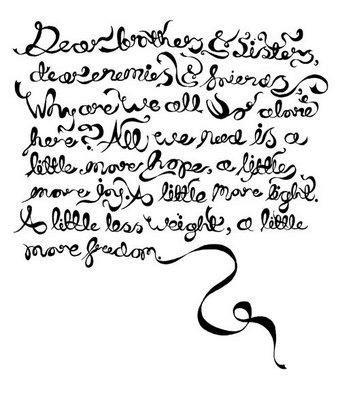 Dear brothers & Sisters,
dear enemies & friends,
Why are we all so alone
here? All we need is a
little more hope, a little
more joy. A little more light.
A little less weight, a little
more freedom.